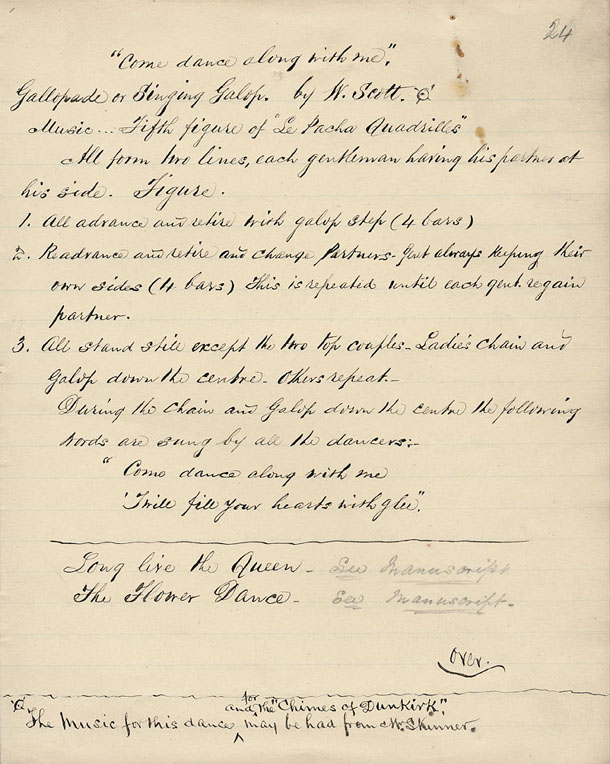 24
"Come dance along with me".
Gallopade or Singing Galop. by W. Scott.
Music... Fifth figure of "Le Pacha Quadrilles"
All form two lines, each gentleman having his partner at
his side. Figure.
1. All advance and retire with galop step (4 bars)
2. Readvance and retire and change Partners - Gent always keeping their
own sides (4 bars) This is repeated until each gent. regain
partner.
3. All stand still except the two top couples - Ladies chain and
Galop down the centre - Others repeat. -
During the Chain and Galop down the centre the following
words are sung by all the dancers:-
"Come dance along with me
'Twill fill your hearts with glee".
Long live the Queen - See Manuscript
The Flower Dance - See Manuscript -
Over.
for
and the "Chimes of Dunkirk",
The Music for this dance ^ may be had from Mr. Skinner.